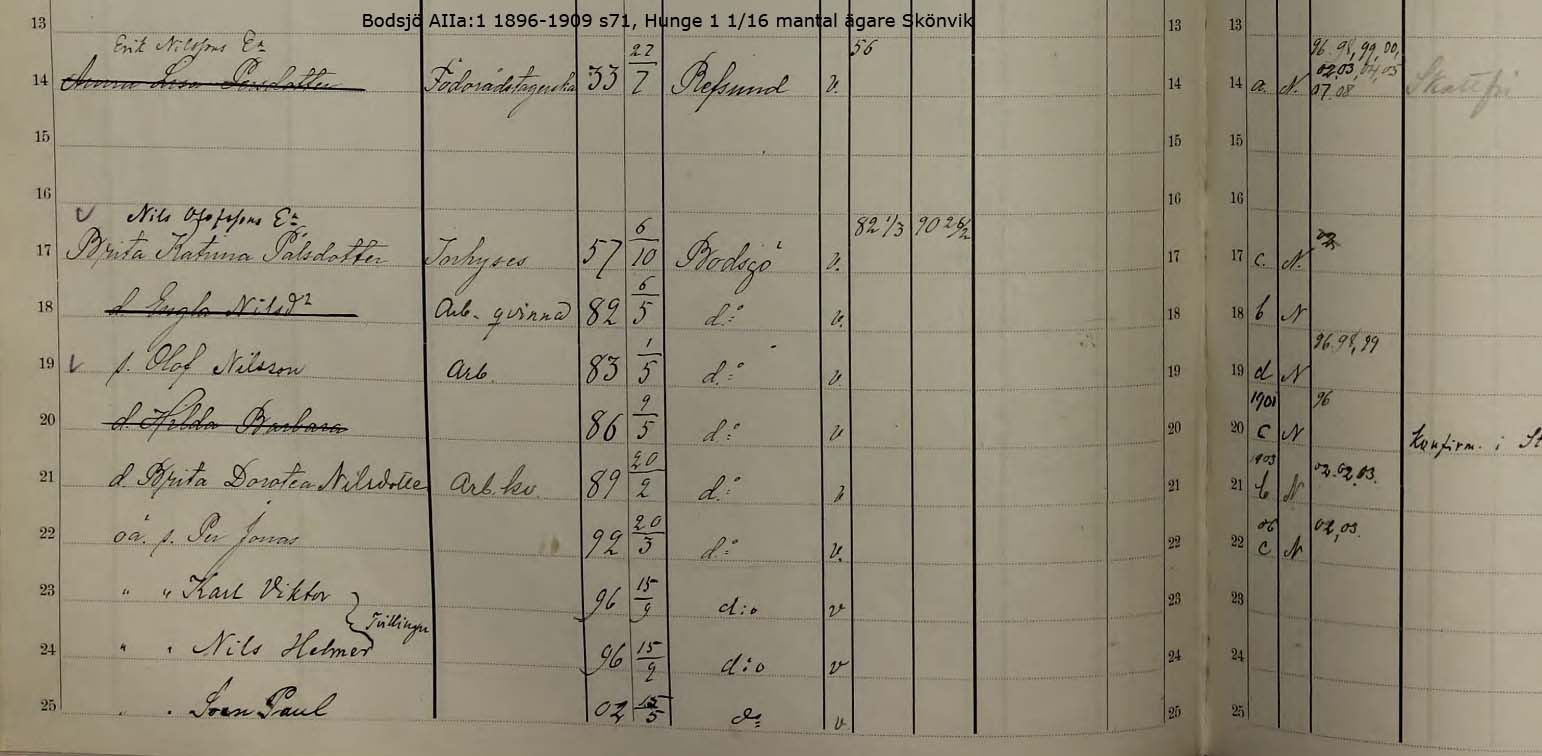 Bodsjö AIIa:1 1896-1909 s71, Hunge 1 1/16 mantal ägare Skönvik
13 13 13
Erik Nilssons Eª 27 56 96. 98, 99, 00,
14 Anna Lisa Persdotter Födorådstagerska 33 7 Refsund v. 14 14 a. N. 02.03, 04, 05 Skattfri
07.08
15 15 15
16 16 16
Nils Olofssons Eª 6 82 1/3 90 26/2 02
17 Brita Katrina Pålsdotter Inhyses 57 10 Bodsjö v. 17 17 c. N.
18 d. Engla Nilsdr Arb. qvinna 82 6/5 d:o v. 18 18 b N
96.98, 99
19 s. Olof Nilsson Arb. 83 1/5 d:o v. 19 19 d N
1901 96
20 d. Hilda Barbara 86 9/5 d:o v 20 20 c N Konfirm. i St
1903 02.03.
21 d Brita Dorotea Nilsdotter Arb. kv. 89 20/2 d:o v 21 21 b N
06 02, 03.
22 oä. s. Per Jonas 92 20/3 d:o v. 22 22 c N
23 " " Karl Viktor 96 15/9 d:o v 23 23
Tvillingar
24 " " Nils Helmer 96 15/9 d:o v 24 24
25 " " Sven Paul 02 15/5 do v 25 25